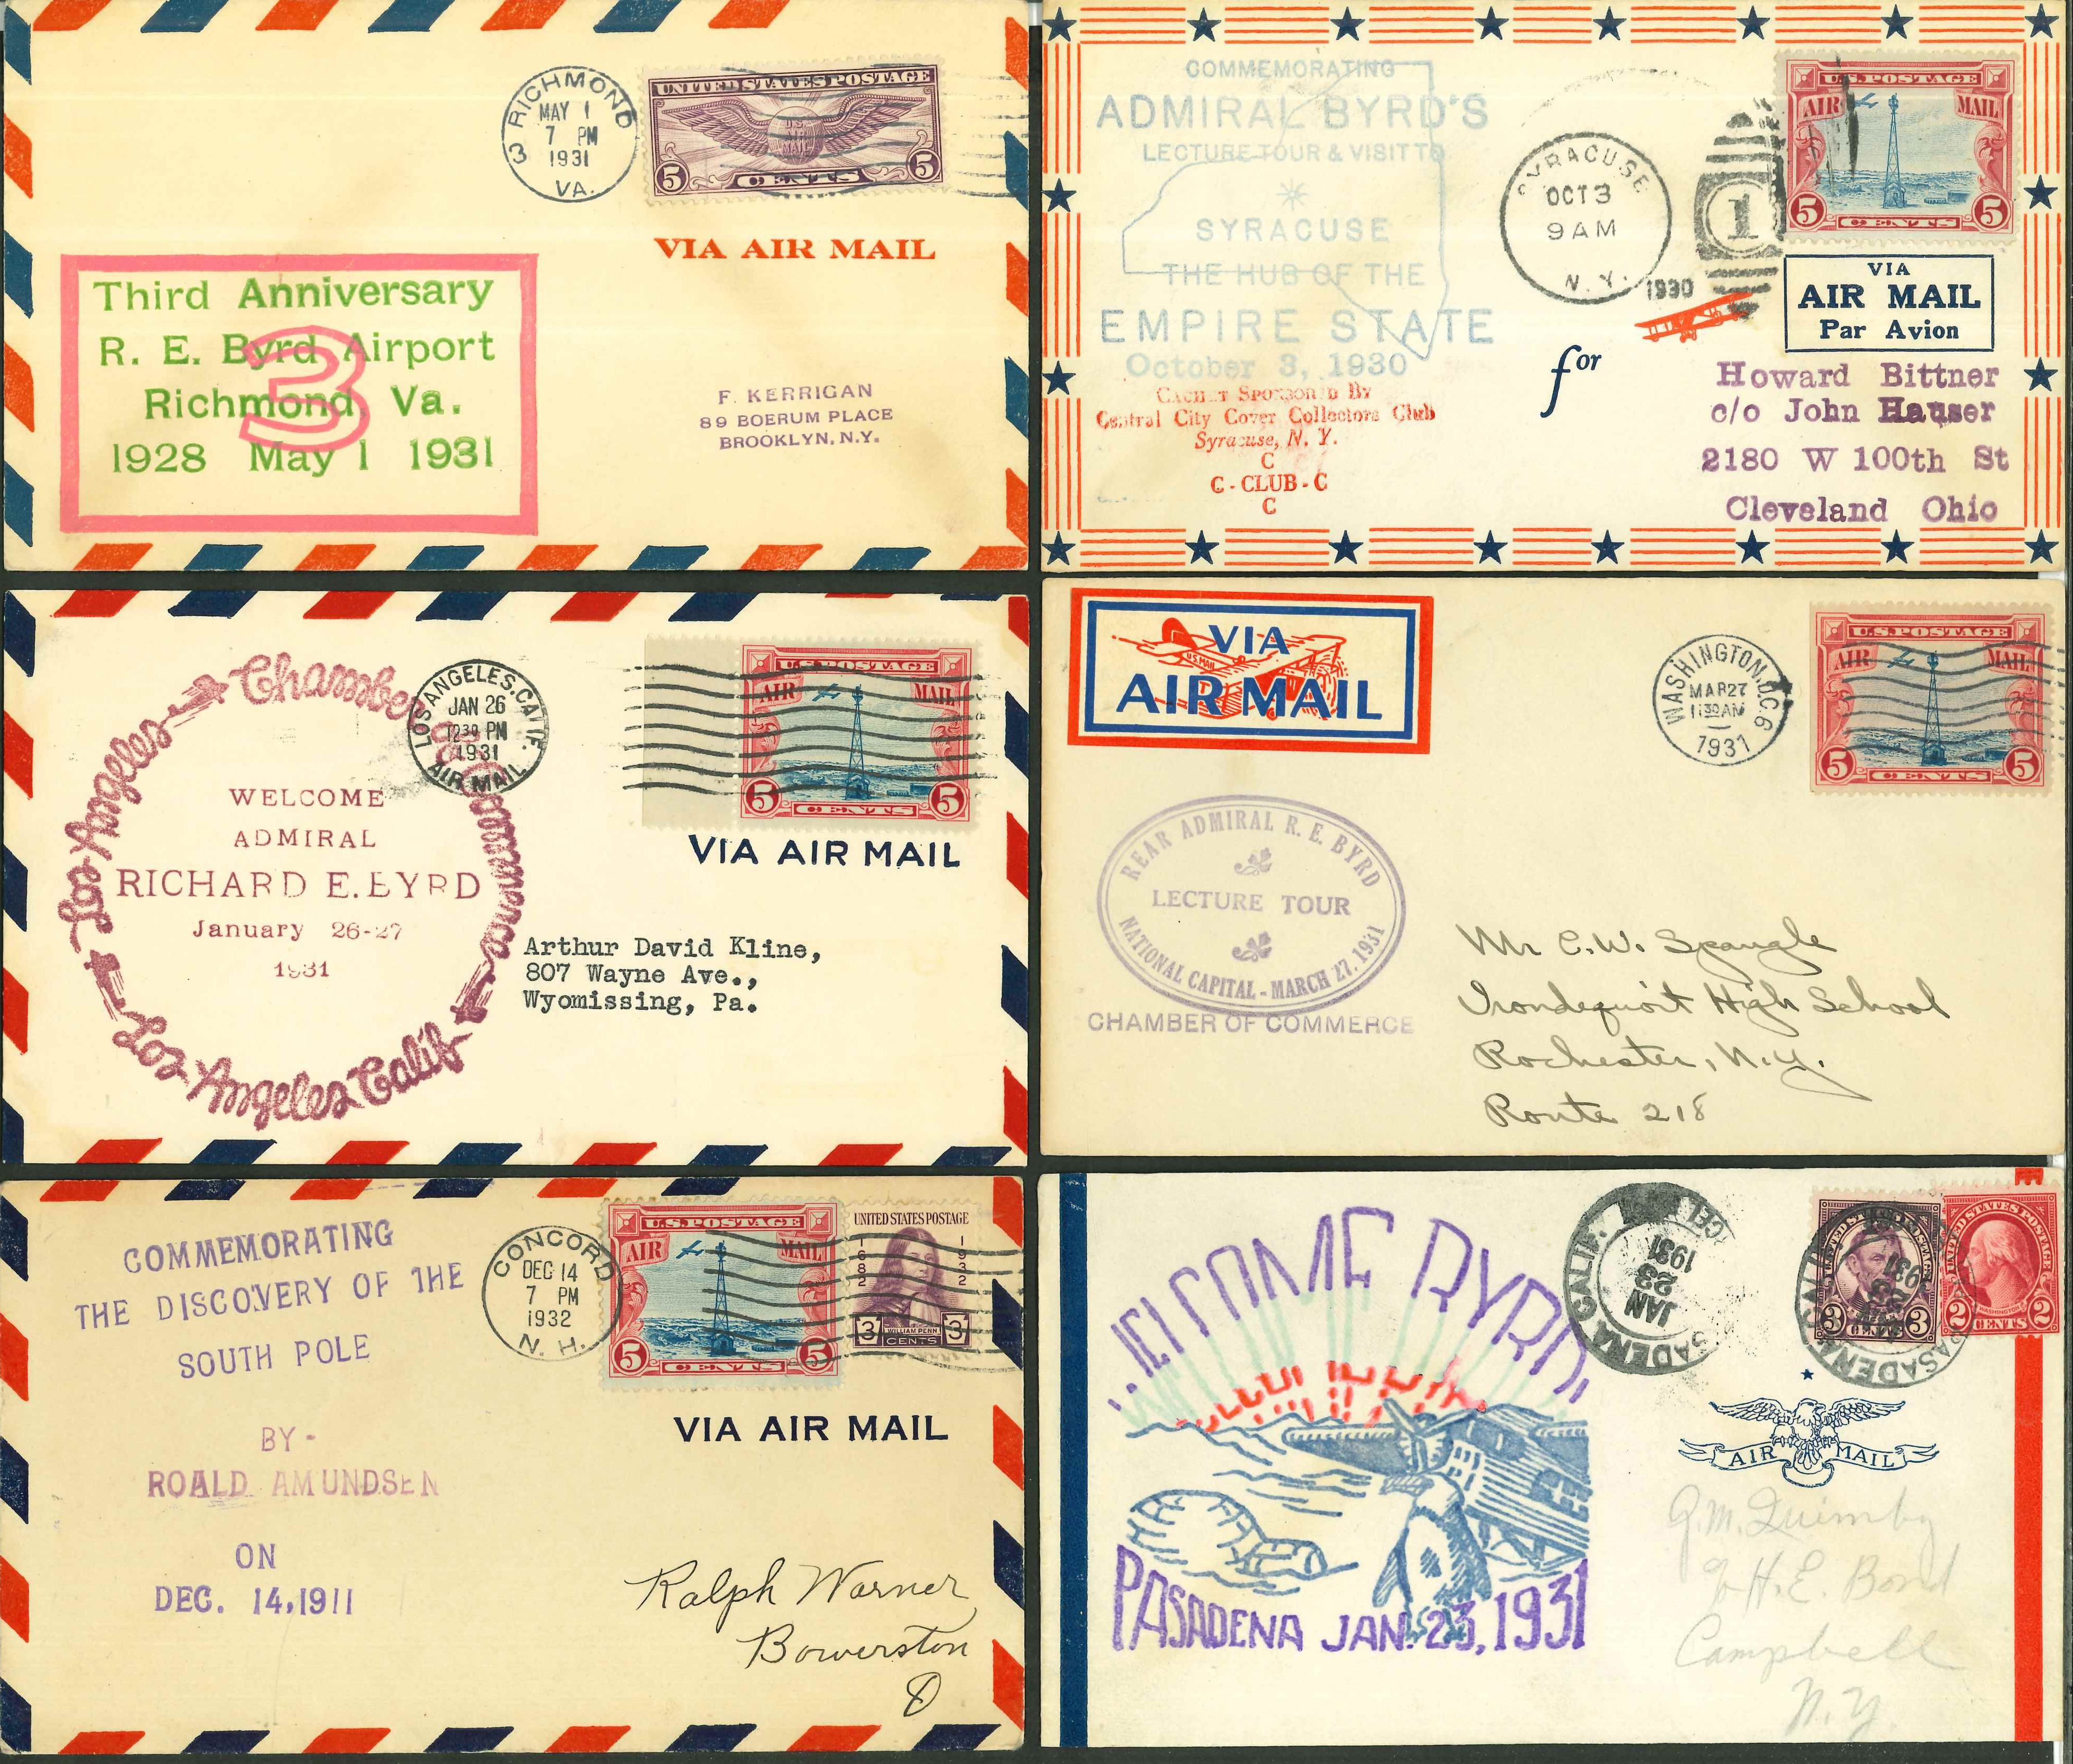 3 RICHMOND
MAY 1
7 PM
1931
VA.
UNITED STATES POSTAGE
U.S.
AIR
MAIL
5 CENTS 5
VIA AIR MAIL
Third Anniversary
R. E. Byrd Airport
Richmond, Va.
1928 May 1 1931
3
F. KERRIGAN
89 BOERUM PLACE
BROOKLYN, N.Y.
COMMEMORATING
ADMIRAL BYRD'S
LECTURE TOUR & VISIT TO
SYRACUSE
THE HUB OF THE
EMPIRE STATE
October 3, 1930
CACHET SPONSORED BY
Central City Cover Collectors Club
Syracuse, N. Y.
C
C - CLUB - C
C
SYRACUSE
OCT 3
9 AM
N. Y.
1930
1
U.S. POSTAGE
AIR MAIL
5 CENTS 5
VIA
AIR MAIL
Par Avion
for
Howard Bittner
c/o John Hauser
2180 W 100th St
Cleveland Ohio
Los Angeles Chamber of Commerce
WELCOME
ADMIRAL
RICHARD E. BYRD
January 26-27
1931
Los Angeles Calif
LOS ANGELES, CALIF.
JAN 26
12 30 PM
1931
AIR MAIL
U.S. POSTAGE
AIR MAIL
5 CENTS 5
VIA AIR MAIL
Arthur David Kline,
807 Wayne Ave.,
Wyomissing, Pa.
VIA
U.S. MAIL
AIR MAIL
WASHINGTON, D.C. 6
MAR 27
11 30 AM
1931
U.S. POSTAGE
AIR MAIL
5 CENTS 5
REAR ADMIRAL R. E. BYRD
LECTURE TOUR
NATIONAL CAPITAL - MARCH 27. 1931
CHAMBER OF COMMERCE
Mr C. W. Spangle
Irondequoit High School
Rochester, N.Y.
Route 218
COMMEMORATING
THE DISCOVERY OF THE
SOUTH POLE
BY -
ROALD AMUNDSEN
ON
DEC. 14, 1911
CONCORD
DEC 14
7 PM
1932
N. H.
U.S. POSTAGE
AIR MAIL
5 CENTS 5
UNITED STATES POSTAGE
1682 1932
WILLIAM PENN
3 CENTS 3
VIA AIR MAIL
Ralph Warner
Bowerston
O
WELCOME BYRD
PASADENA JAN. 23, 1931
PASADENA CALIF.
JAN
23
1931
UNITED STATES POSTAGE
3 CENTS 3
UNITED STATES POSTAGE
WASHINGTON
2 CENTS 2
PASADENA CALIF.
JAN
23
1931
AIR MAIL
G. M. Quimby
% H. E. Bond
Campbell
N. Y.